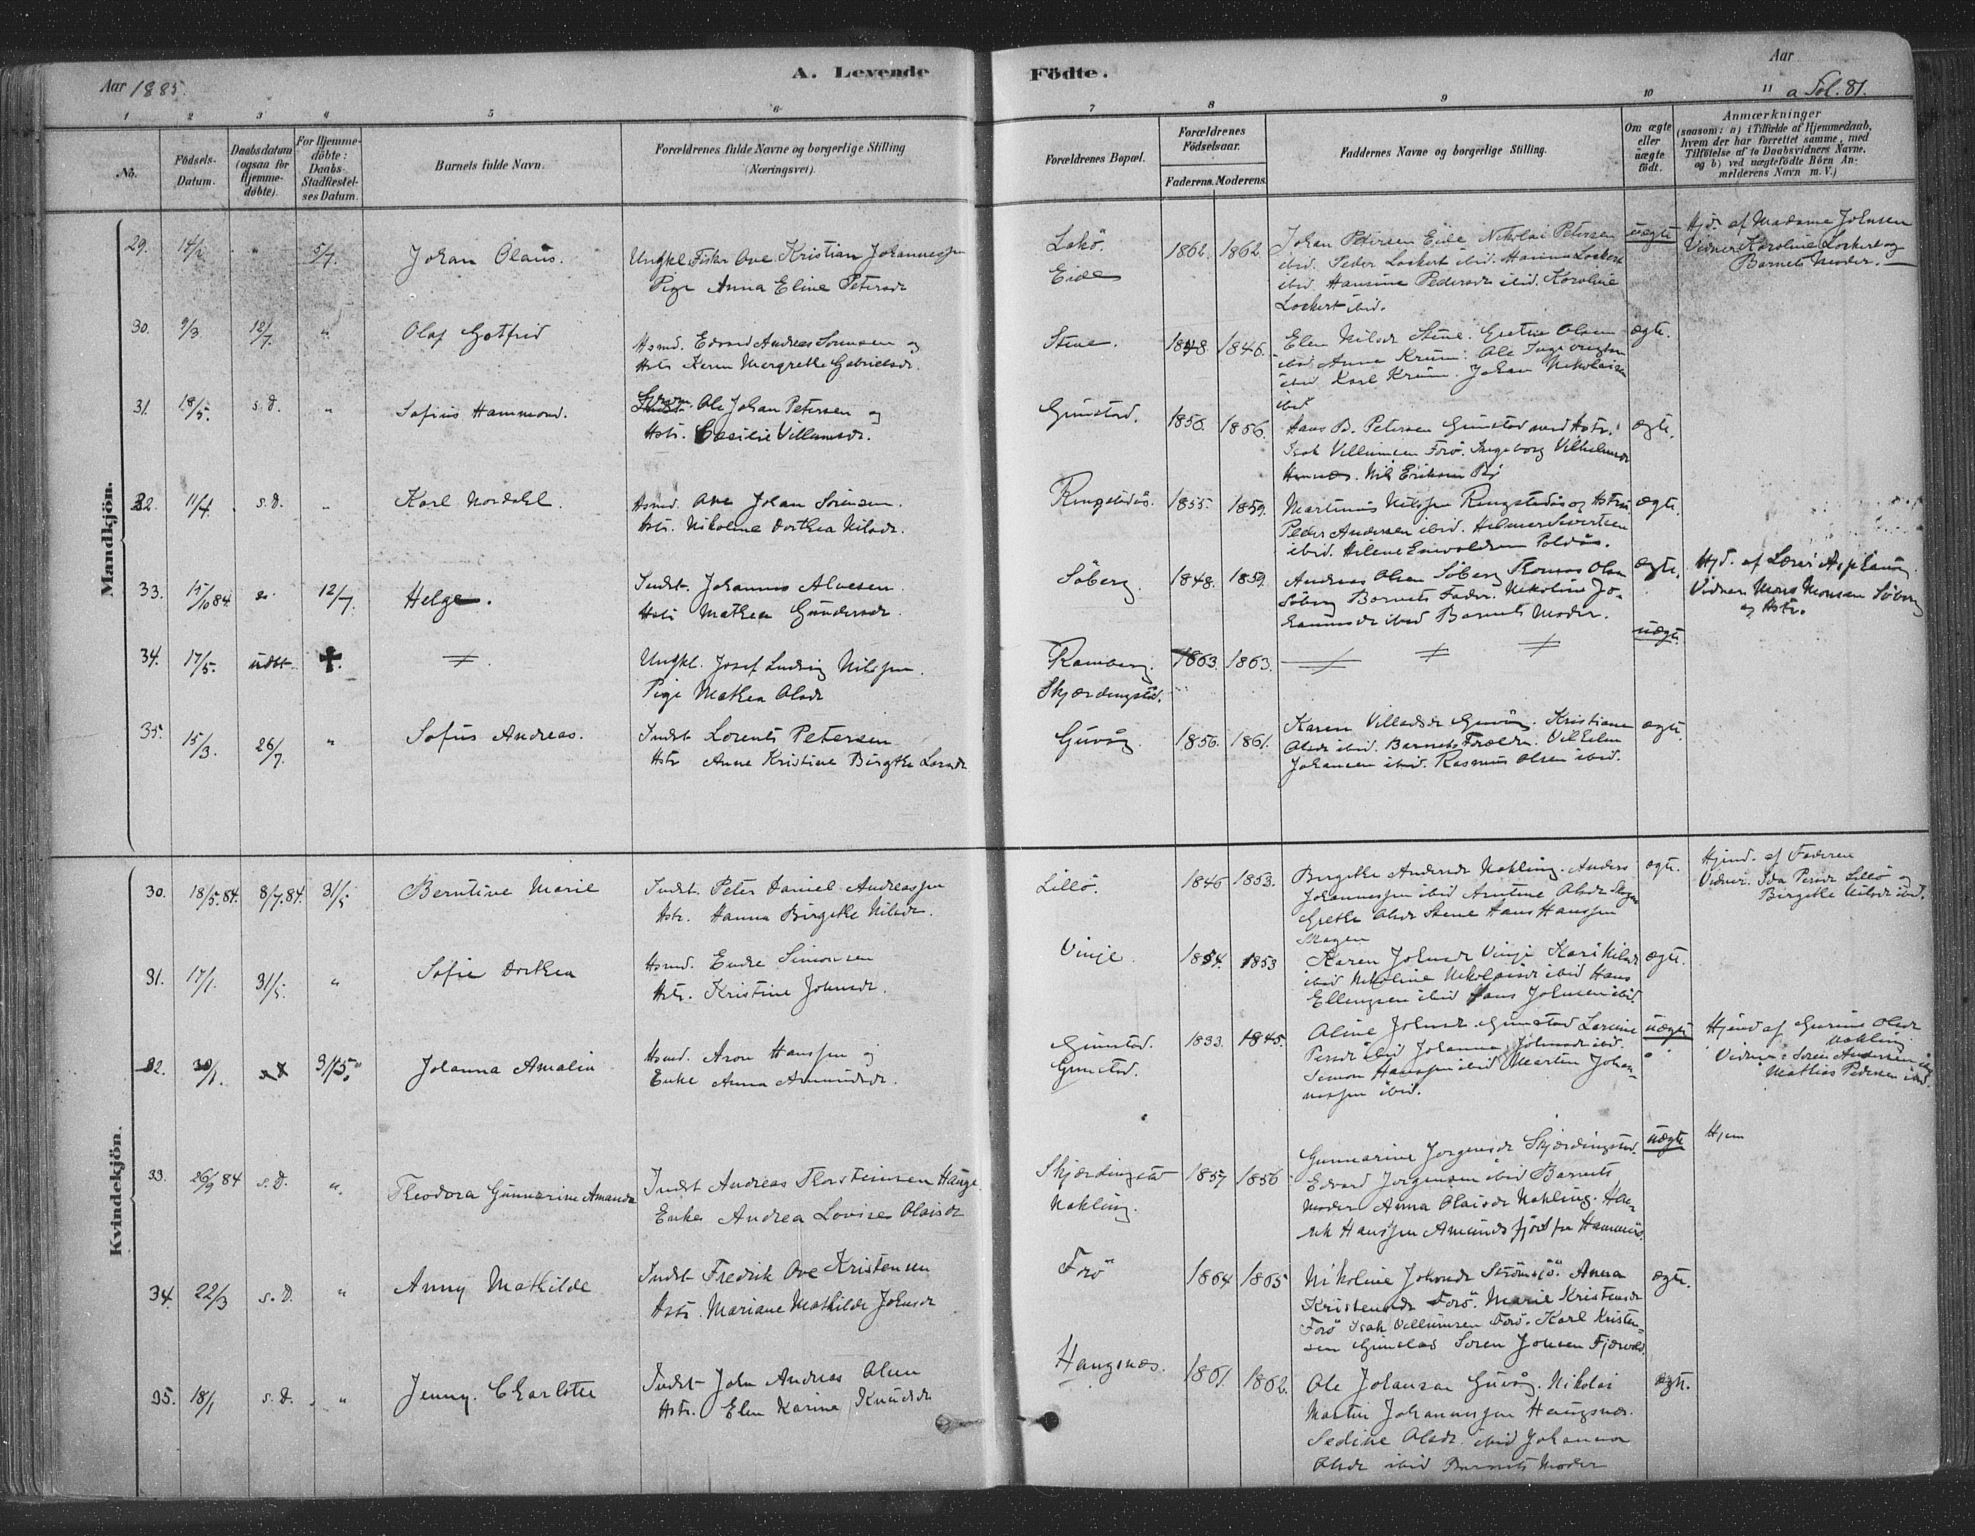 Aar 1885.
A. Levende
Födte.
Aar
a Fol. 81.
1 2 3 4 5 6 7 8 9 10 11
No.
Födsels-Datum.
Daabsdatum (ogsaa for Hjemme-döbte).
For Hjemme-döbte: Daabs-Stadfæstel-ses Datum.
Barnets fulde Navn.
Forældrenes fulde Navne og borgerlige Stilling
(Næringsvei)
Forældrenes Bopæl.
Forældrenes Födselsaar.
Faderens. Moderens.
Faddernes Navne og borgerlige Stilling.
Om ægte eller uægte födt.
Anmærkninger
(saasom: a) i Tilfælde af Hjemmedaab,
hvem der har forrettet samme, med
Tilföielse af to Daabsvidners Navne,
og b) ved uægtefödte Börn An-
melderens Navn m. V.)
Mandkjön.
29. 14/2 " 5/7. Johan Olaus. Ungkl. Fisker Ove Kristian Johannessen
Pige Anna Eline Petersdr
Eide
1862. 1862.
Johan Petersen Eide Nikolai Petersen
ibid. Peder Lockert ibid. Hanna Lockert
ibid. Hansine Pedersdr ibid. Karoline
Lockert ibid.
uægte
Hjd. af Madame Johnsen
Vidner Karoline Lockert og
Barnets Moder.
30. 9/3 12/7. " Olaf Gotfred
Hsmd. Edvard Andreas Sörensen og
Hstr Karen Margrethe Gabrielsdr.
Stene. 1848 1846.
Elen Nilsdr Stene. Grethe Olsen
ibid Anne Krüm. Ole
ibid. Karl Krüm. Johan Nikolaisen
ibid
ægte.
31. 18/5. s.d. " Sofius Hammond.
Ole Johan Petersen og
Hstr. Cæcilie Villumsdr.
Gimstad. 1856. 1856.
Hans B. Petersen Gimstad med Hstr.
Isak Villumsen Forö. Ingeborg Vilhelmsdr
Nils Eriksen Bö
ægte.
32. 11/4. s.d. " Karl Nordahl.
Hsmd. Ove Johan Sörensen.
Hstr. Nikoline Dorthea Nilsdr.
Ringstadås. 1855. 1859.
Martinus Nilssen Ringstadås og Hstru
Peder Andersen ibid. Helmer Sivertsen
ibid. Helene Poldås.
ægte.
33. 15/10 84. 12/7. Helge.
Indst. Johannes Alvesen
Hstr Mathea Gundersdr.
Söberg. 1848. 1859.
Andreas Olsen Söberg Thomas Olsen
Söberg Barnets Fader. Nikoline Jo-
hannesdr ibid Barnets Moder.
ægte.
Vidner Mons Monsen Söberg
og Hstr.
34. 17/5. udbt ✝.
Ungkl. Josef Ludvig Nilssen.
Pige Mathea Olsdr
Ramberg.
Skjærdingstad.
1863. 1863.
uægt.
35. 15/3. 26/7. " Sofus Andreas.
Indst Lorents Petersen
Hstr Anne Kristine Birgthe Larsdr
Guvåg. 1856. 1861.
Karen Villadsdr Guvåg. Kristiane
Olsdr ibid. Barnets Forældre. Vilhelm
Johansen ibid. Rasmus Olsen ibid.
ægte.
Kvindekjön.
30. 18/5.84. 8/7.84. 31/5 Berntine Marie
Indst. Peter Daniel Andreassen
Hstr. Hanna Birgithe Nilsdr.
Lillö. 1846 1853.
Birgithe Andersdr Nakling. Anders
Johannessen ibid Arntine Olsdr Skogen
Grethe Olsdr Stene Hans Hanssen
Skogen
ægte.
Hjemd. af Faderen
Vidner. Ida Persdr Lillö og
Birgithe Nilsdr ibid.
31. 17/1. 31/5. " Sofie Dorthea
Hsmd. Endre Simonsen
Hstr. Kristine Johnsdr.
Vinje. 1854. 1853
Karen Johnsdr Vinje Kari Nilsdr
ibid Nikoline Nikolaisdr ibid Hans
Ellingsen ibid Hans Johnsen ibid.
ægte.
32. 30/1. 31/5. " Johanna Amalia
Hsmd. Aron Hanssen og
Enke Anna Amundsdr.
Gimstad.
Gimstad.
1833. 1845.
Oline Johnsdr Gimstad Lorine
Persdr ibid Johanna Johnsdr ibid.
Simon Hanssen ibid Marten Johan-
nessen ibid.
uægte
Hjemd af Gurine Olsdr
Nakling
Vidner: Sören Andersen og
Mathias Pedersen ibid.
33. 26/9 84 s.D. " Theodora Gunnarine Amanda
Indst Andreas Thorsteinsen Hauge
Enke Andrea Lovise Olaisdr
Skjærdingstad
Nakling.
1857 1856
Gunnarine Jörgensdr Skjærdingstad.
Edvard Jörgensen ibid Barnets
Moder Anna Olaisdr Nakling. Hen-
rik Hanssen
uægte
Hjem
34. 22/3 s.D. " Anny Mathilde
Indst Fredrik Ove Kristensen
Hstr. Mariane Mathilde Johnsdr.
Forö 1864 1865
Nikoline Johnsdr Strömsjö. Anna
Kristensdr Forö. Marie Kristensdr
Forö Isak Villumsen Forö. Karl Kristen-
sen Gimstad Sören Jonsen
ægte.
35. 18/1 s.D. " Jenny Charlotte
Indst John Andreas Olsen
Hstr. Elen Karine Knudsdr
Haugsnæs. 1861. 1862.
Ole Johansen Guvåg. Nikolai
Martin Johannessen Haugsnæs.
Sedine Olsdr. ibid Johanna
Olsdr ibid Barnets Moder
ægte.